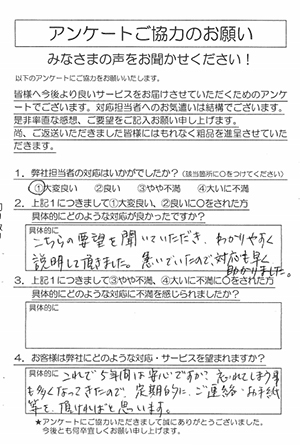 アンケートご協力のお願い
みなさまの声をお聞かせください！
以下のアンケートにご協力をお願いいたします。
皆様へ今後より良いサービスをお届けさせていただくためのアンケートでございます。対応担当者へのお気遣いは結構でございます。
是非率直な感想、ご要望をご記入お願い申し上げます。
尚、ご返送いただきました皆様にはもれなく粗品を進呈させていただきます。
1．弊社担当者の対応はいかがでしたか？（該当箇所に○をつけてください）
①大変良い　②良い　③やや不満　④大いに不満
2．上記1につきまして①大変良い、②良いに○をされた方
具体的にどのような対応が良かったですか？
具体的に
こちらの要望を聞いていただき、わかりやすく
説明して頂きました。急いでいたので、対応も早く
助かりました。
3．上記1につきまして③やや不満、④大いに不満に○をされた方
具体的にどのような対応に不満を感じられましたか？
具体的に
4．お客様は弊社にどのような対応・サービスを望まれますか？
具体的に
これで5年間は安心ですが、忘れてしまう事
も多くなってきたので、定期的にご連絡・お手紙
等を、頂ければと思います。
★アンケートにご協力いただきまして誠にありがとうございました。
今後とも何卒宜しくお願い申し上げます。